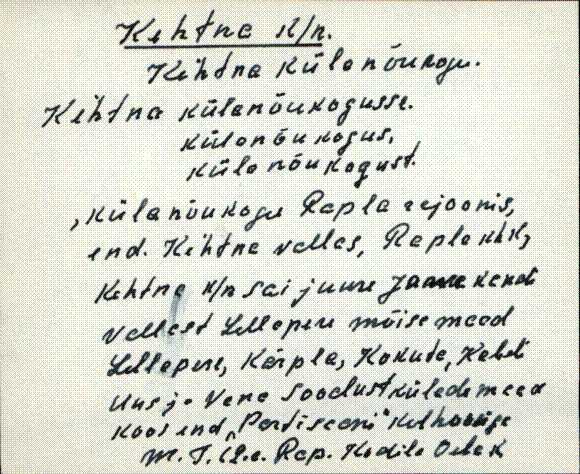 Kehtna k/n.
Kehtna Külanõukogu.
Kehtna külanõukogusse.
külanõukogus,
külanõukogust.
, külanõukogu Rapla rajoonis,
end. Kehtna vallas, Rapla khk,
Kehtna k/n sai juure
vallast Lellapere mõisa maad
Lellapere, Kärpla, Kokuta,
Uus ja Vana külade maad
koos end. "Partisaani" kolhoosiga
M. T. Rap. Kodila